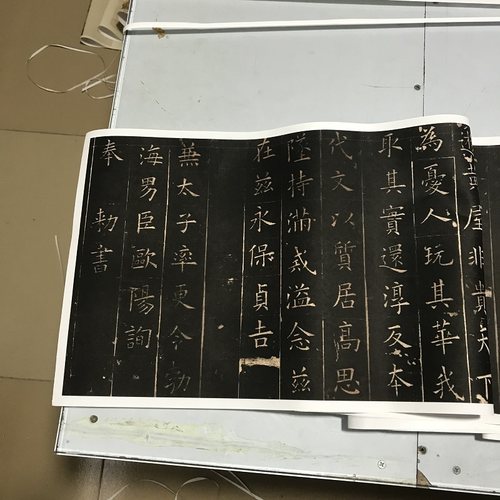 遊黃屋非貴天下
為憂人玩其華我
取其實還淳反本
代文以質居高思
墜持滿戒溢念茲
在茲永保貞吉
兼太子率更令勃
海男臣歐陽詢
奉 勑書